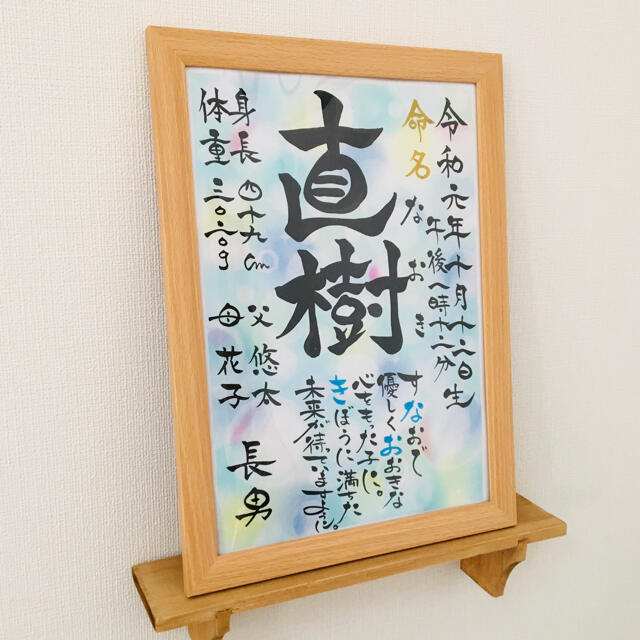 令和元年十月十六日生
午後八時十六分
命名
なおき
直樹
すなおで
優しくおおきな
心をもった子に。
きぼうに満ちた
未来が待っていますように。
身長 四十九cm
体重 三〇二〇g
父 悠太
母 花子
長男